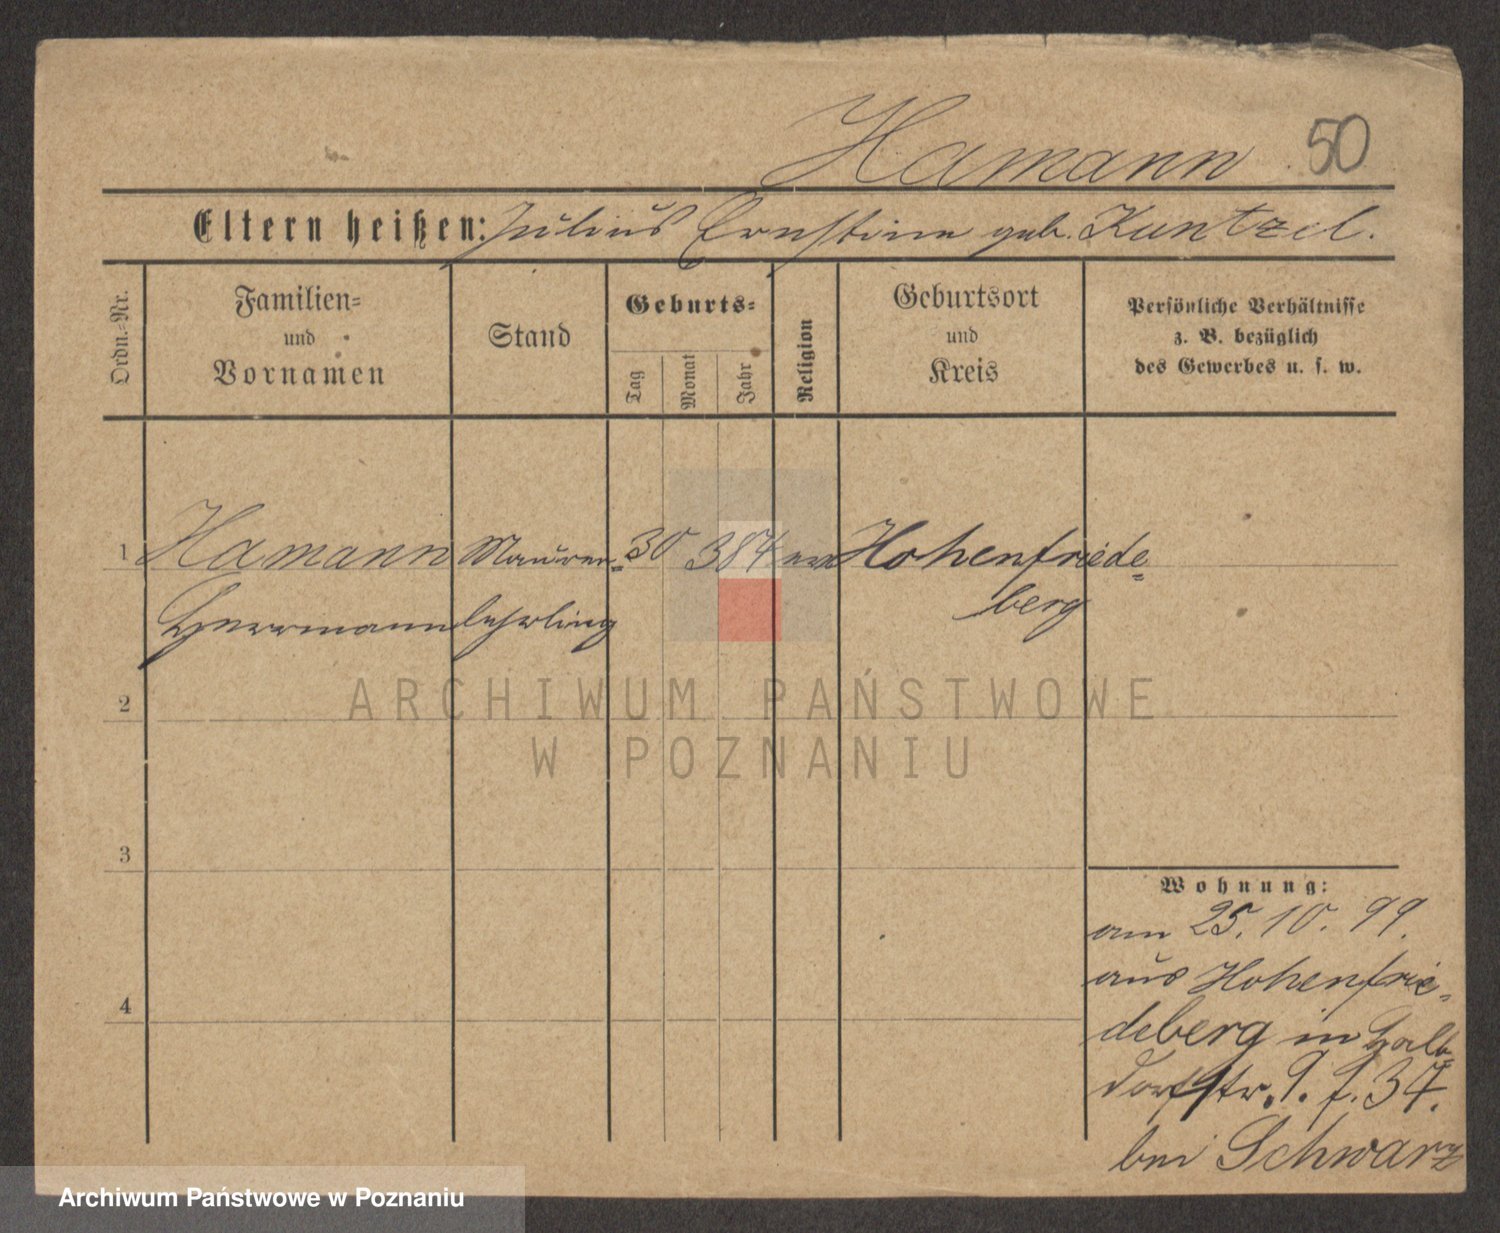 Hamann 50
Eltern heißen: Julius Ernstine geb. Kuntzel.
Ordn.-Nr.
Familien-
und
Vornamen
Stand
Geburts-
Tag
Monat
Jahr
Religion
Geburtsort
und
Kreis
Persönliche Verhältnisse
z. B. bezüglich
des Gewerbes u. s. w.
1 Hamann Maurer- 30 3 84 Hohenfriede-
Herrmann lehrling berg
2
3
4
Wohnung:
am 25. 10. 99.
aus Hohenfrie-
deberg in Halb-
dorfstr. 37.
bei Schwarz
ARCHIWUM PAŃSTWOWE
W POZNANIU
Archiwum Państwowe w Poznaniu